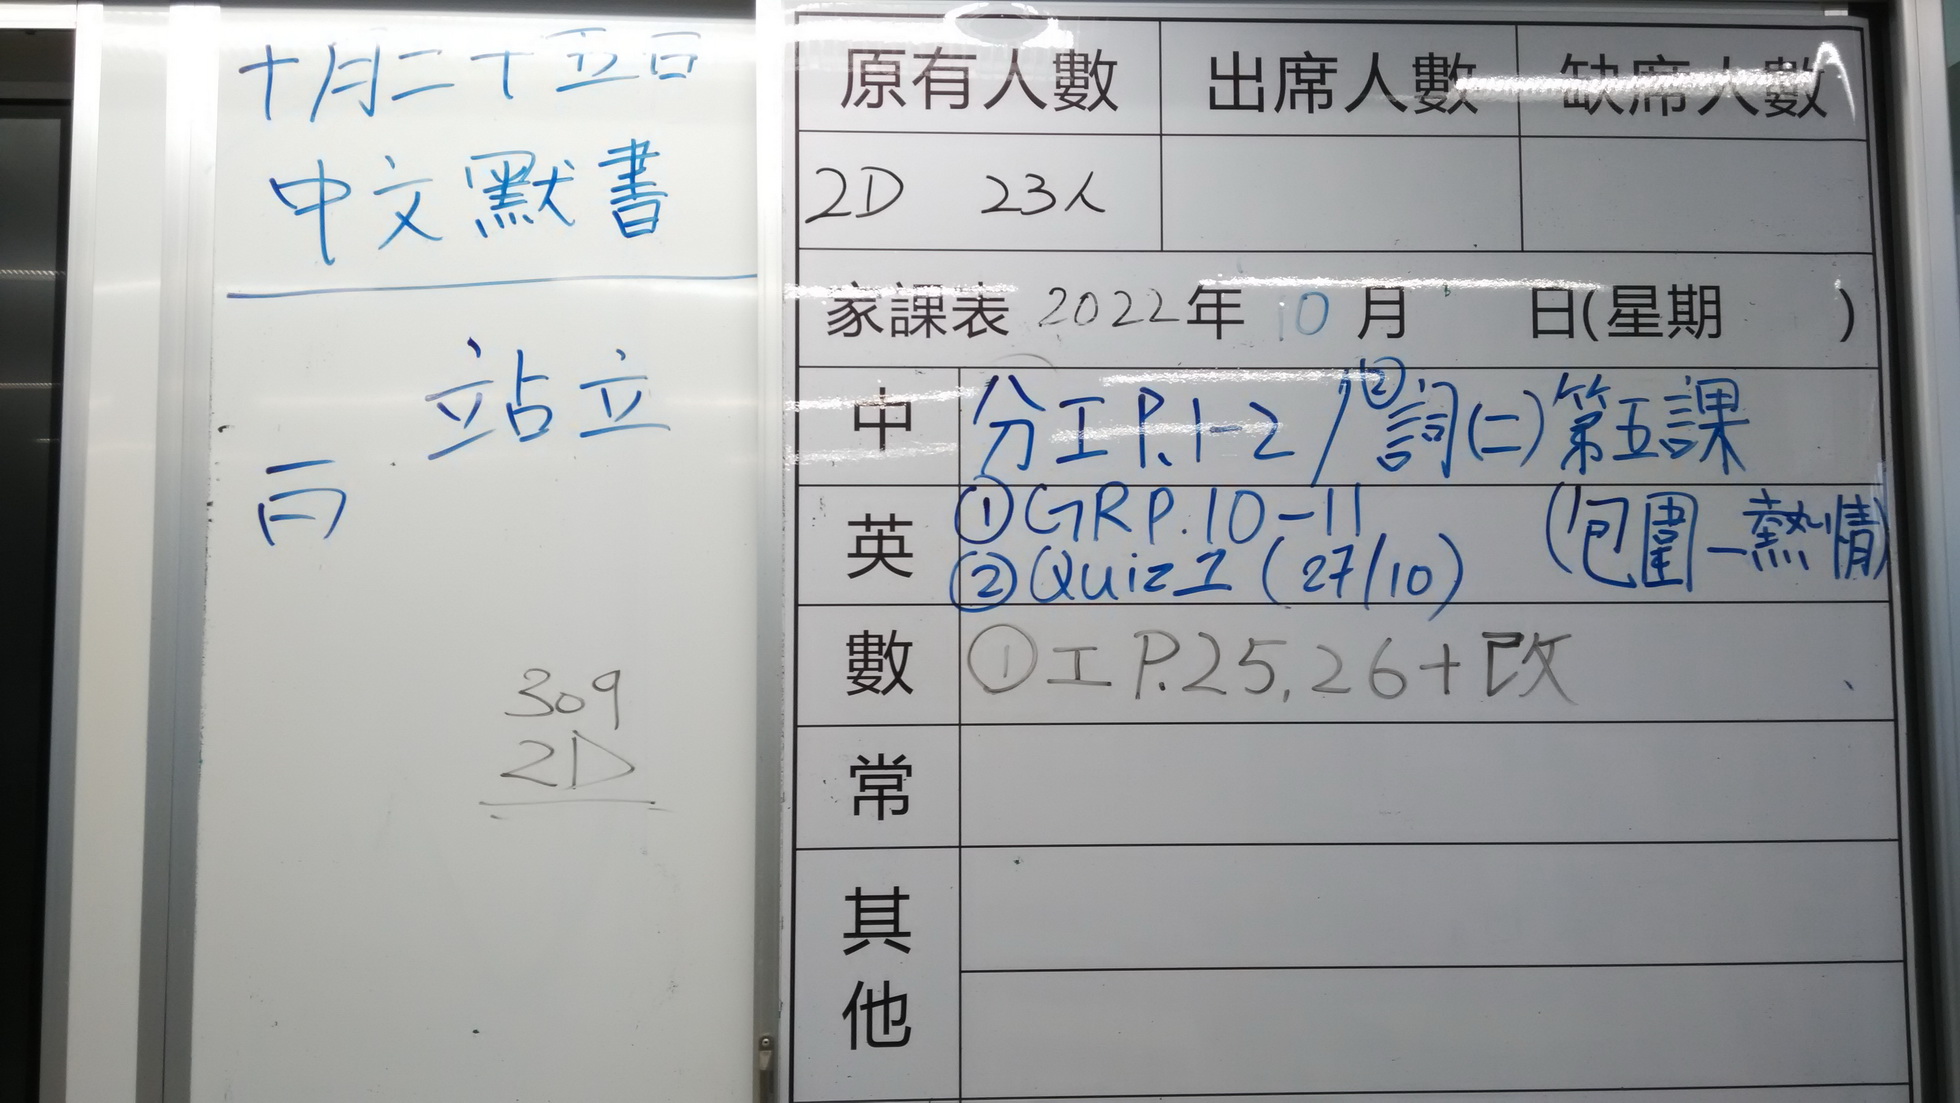 十月二十五日
中文默書
站立
309
2D
原有人數 出席人數 缺席人數
2D 23人
家課表 2022年 10月 日(星期 )
中 分工P.1-2 / ②詞(二)第五課
(包圍—熱情)
英 ①GRP.10-11
②Quiz 1 (27/10)
數 ①工P.25,26+改
常
其他